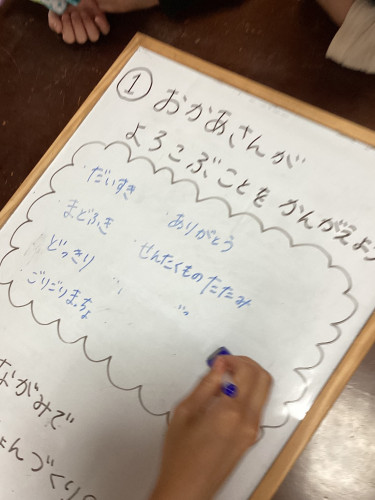 ① おかあさんが
よろこぶことを かんがえよう
・だいすき
・まどふき
どっきり
ごりごりまっちょ
ありがとう
せんたくものたたみ
ながみで